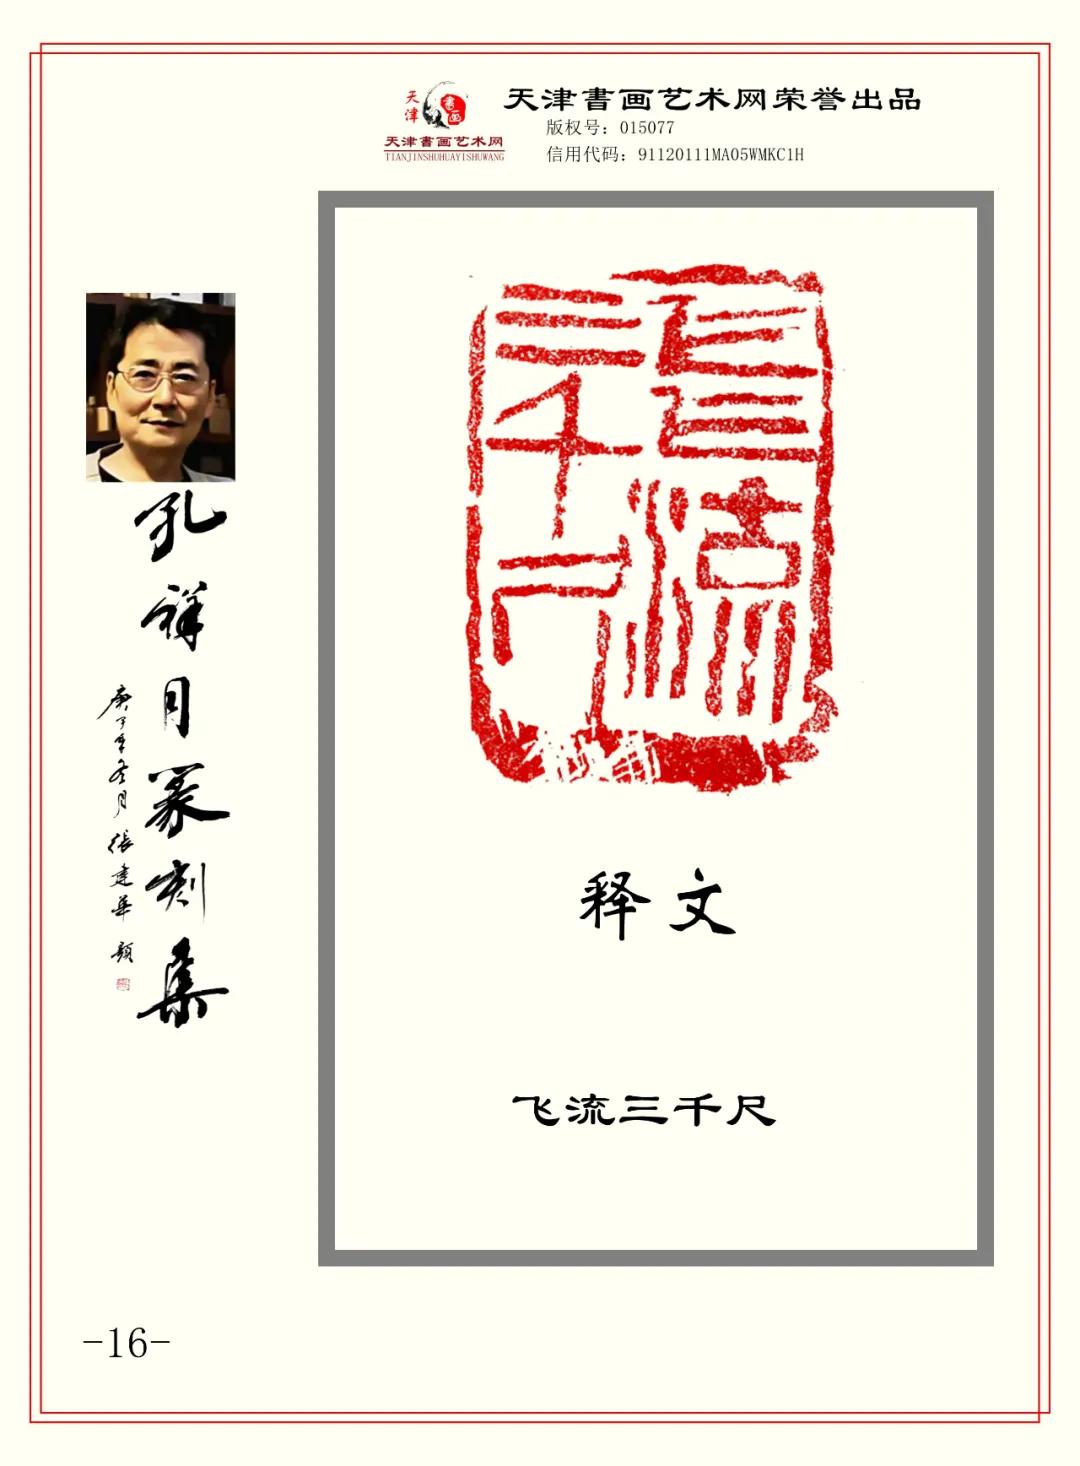 天津
書画
天津書画艺术网
TIANJINSHUHUAYISHUWANG
天津書画艺术网荣誉出品
版权号：015077
信用代码：91120111MA05WMKC1H
孔祥月篆刻集
庚子年冬月張建华題
飞流三千尺
释文
飞流三千尺
-16-